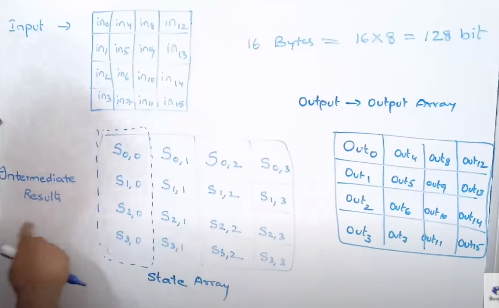 Input → in0 in4 in8 in12
in1 in5 in9 in13
in2 in6 in10 in14
in3 in7 in11 in15
16 Bytes = 16×8 = 128 bit
Output → Output Array
Intermediate Result
S0,0 S0,1 S0,2 S0,3
S1,0 S1,1 S1,2 S1,3
S2,0 S2,1 S2,2 S2,3
S3,0 S3,1 S3,2 S3,3
State Array
Out0 Out4 Out8 Out12
Out1 Out5 Out9 Out13
Out2 Out6 Out10 Out14
Out3 Out7 Out11 Out15